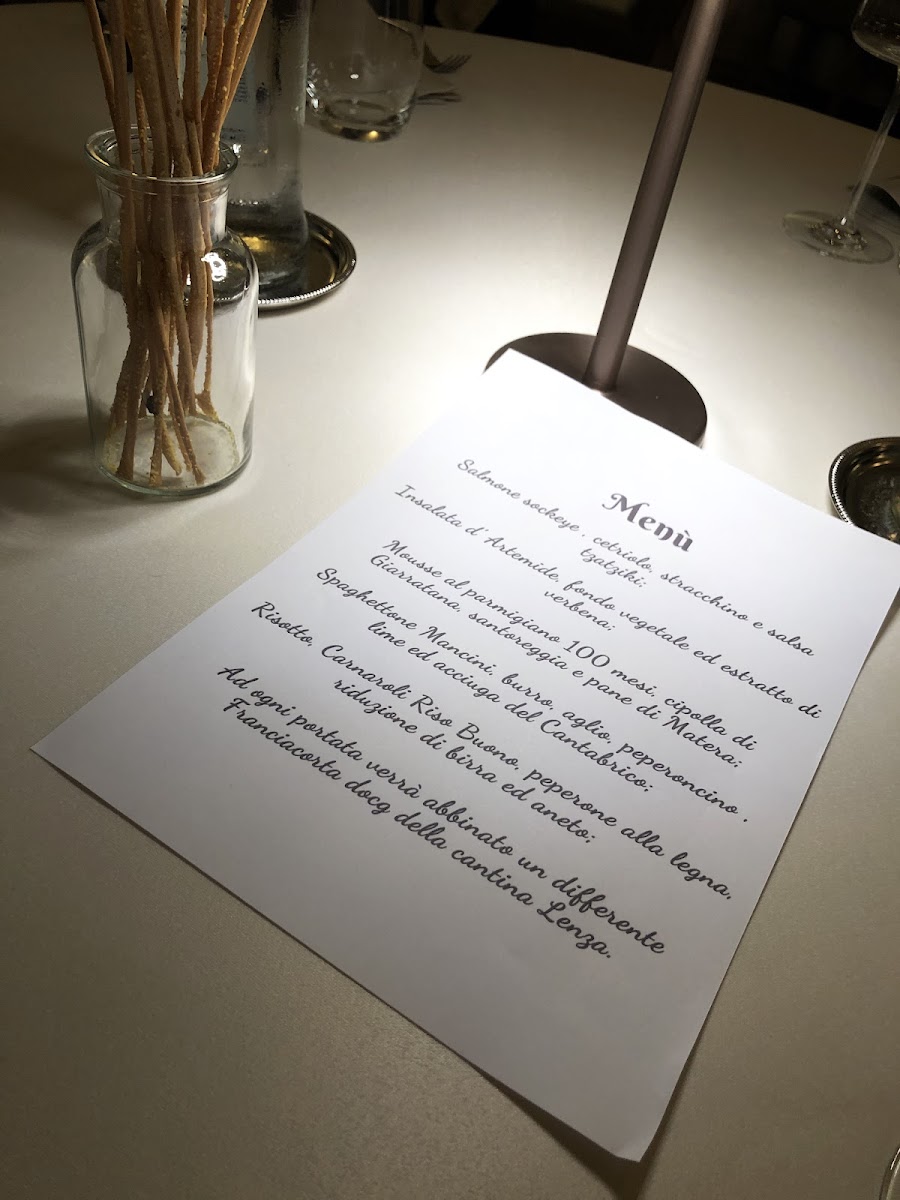 Menù
Salmone sockeye , cetriolo, stracchino e salsa
tzatziki;
Insalata d' Artemide, fondo vegetale ed estratto di
verbena;
Mousse al parmigiano 100 mesi, cipolla di
Giarratana, santoreggia e pane di Matera;
Spaghettone Mancini, burro, aglio, peperoncino ,
lime ed acciuga del Cantabrico;
Risotto, Carnaroli Riso Buono, peperone alla legna,
riduzione di birra ed aneto;
Ad ogni portata verrà abbinato un differente
Franciacorta docg della cantina Lenza.